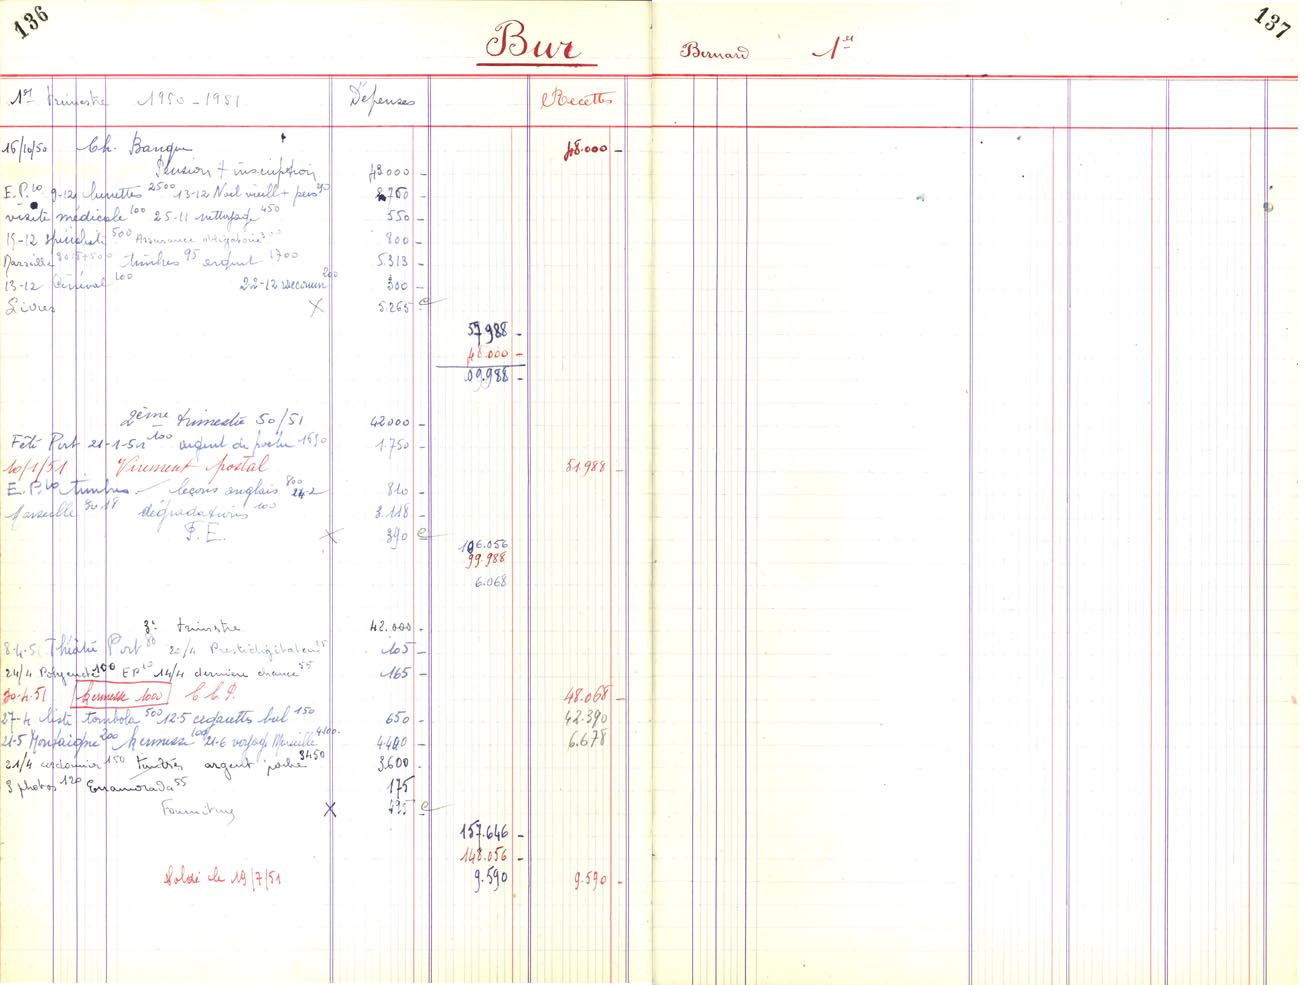 136
137
Bur
Bernard 1er
1er trimestre 1950-1951 Dépenses Recettes
16/10/50 Ch. Banque 48.000 -
Pension + inscription 43000 -
E.P. 9-12 lunettes 2500 13-12 Noel vieill + 760 -
visite médicale 100 25-11 nettoyage 450 550 -
15-12 500 Assurance obligatoire 300 800 -
Marseille 3018+500 timbres 95 argent 1700 5.313 -
13-12 100 22-12 200 300 -
Livres X 5.265 - e
57988 -
48.000 -
09.988 -
2ème trimestre 50/51 42000 -
Fête Port 21-1-51 100 argent de poche 1650 1.750 -
10/1/51 Virement postal 51.988 -
E.P. 10 timbres leçons anglais 800 24-2 810 -
Marseille 3018 dégradations 100 3.118 -
F.E. X 390 - e
106.056
99.988
6.068
3e trimestre 42.000 -
8-4-51 Théâtre Port 80 20/4 Prestidigitateur 25 105 -
24/4 100 EP 10 14/4 dernière chance 55 165 -
30-4-51 kermesse 1000 C.C.P. 48.068 -
27-4 liste tombola 500 12-5 cigarettes bal 150 650 - 42.390
21-5 Montaigne 200 kermesse 100 21-6 voyage Marseille 4100 4.400 - 6.678
21/4 cordonnier 150 timbres argent poche 3450 3.600 -
3 photos 120 Enamorada 55 175
Fournitures X - e
157.646 -
148.056 -
Soldé le 19/7/51 9.590 9.590 -